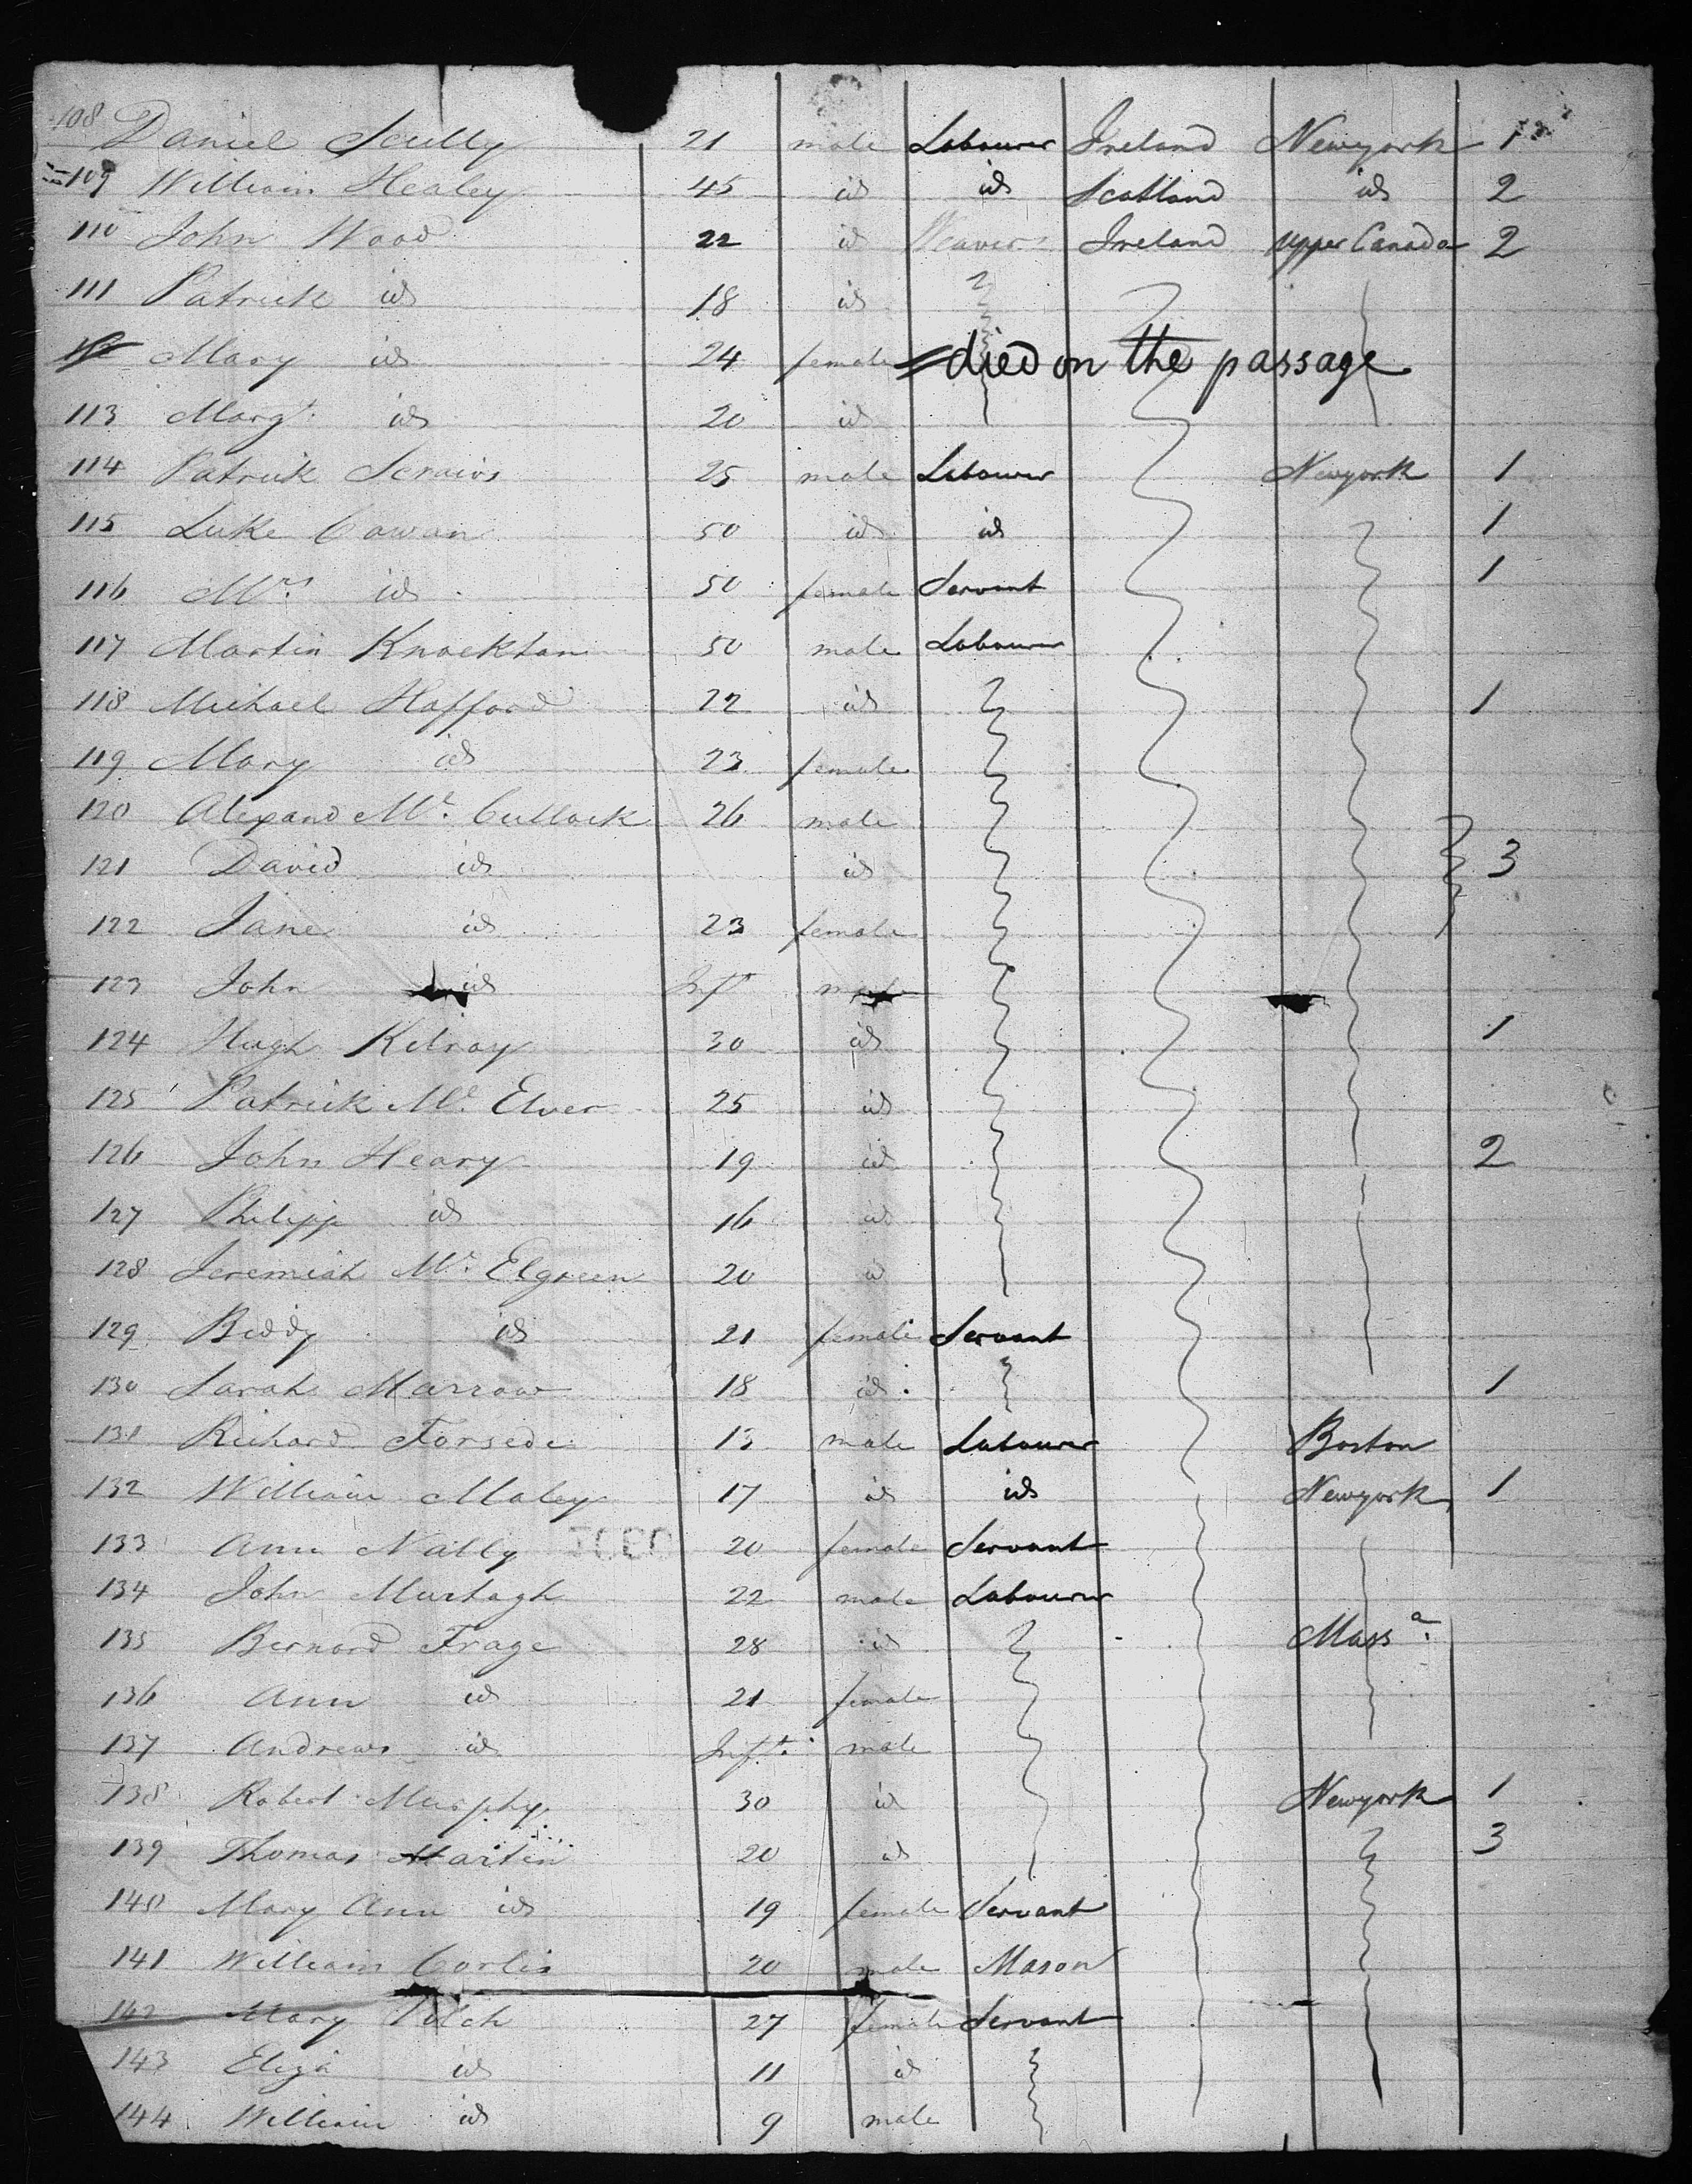 108 Daniel Scully 21 male Labourer Ireland Newyork 1
109 William Healey 45 id id Scotland id 2
110 John Wood 22 id Weaver Ireland Upper Canada 2
111 Patrick id 18 id
Mary id 24 female died on the passage
113 Margt. id 20 id
114 Patrick 25 male Labourer Newyork 1
115 Luke Cowan 50 id id 1
116 Mrs. id 50 female Servant 1
117 Martin Knockton 50 male Labourer
118 Michael Hafford 22 id 1
119 Mary id 23 female
120 Alexand Mc. Cullock 26 male
121 David id id 3
122 Jane id 23 female
123 John id Inft male
124 Hugh Kilroy 30 id 1
125 Patrick Mc. Elver 25 id
126 John Heary 19 id 2
127 Philipp id 16 id
128 Jeremiah Mc. Elgreen 20 id
129 Biddy id 21 female Servant
130 Sarah Marrow 18 id 1
131 Richard Forsede 13 male Labourer Boston
132 William Maley 17 id id Newyork 1
133 Ann Nally 20 female Servant
134 John Murtagh 22 male Labourer
135 Bernard Frage 28 id Massa.
136 Ann id 21 female
137 Andrew id Inft. male
138 Robert Murphy 30 id Newyork 1
139 Thomas Martin 20 id 3
140 Mary Ann id 19 female Servant
141 William Corlis 20 male Mason
142 Mary 27 female Servant
143 Eliza id 11 id
144 William id 9 male